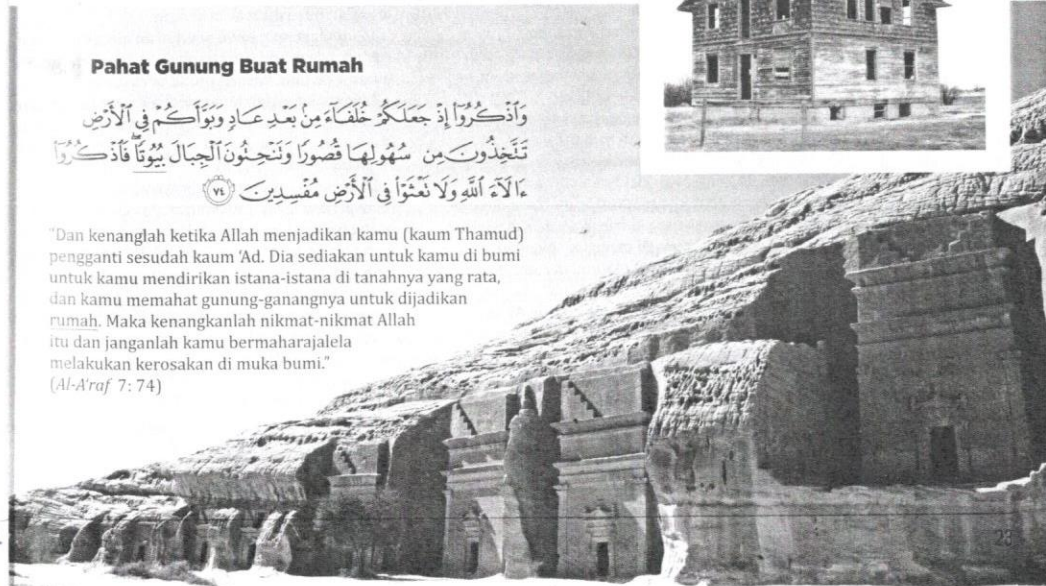 Pahat Gunung Buat Rumah
وَٱذْكُرُوٓا۟ إِذْ جَعَلَكُمْ خُلَفَآءَ مِنۢ بَعْدِ عَادٍ وَبَوَّأَكُمْ فِى ٱلْأَرْضِ
تَتَّخِذُونَ مِن سُهُولِهَا قُصُورًا وَتَنْحِتُونَ ٱلْجِبَالَ بُيُوتًا ۖ فَٱذْكُرُوٓا۟
ءَالَآءَ ٱللَّهِ وَلَا تَعْثَوْا۟ فِى ٱلْأَرْضِ مُفْسِدِينَ ٧٤
"Dan kenanglah ketika Allah menjadikan kamu (kaum Thamud)
pengganti sesudah kaum 'Ad. Dia sediakan untuk kamu di bumi
untuk kamu mendirikan istana-istana di tanahnya yang rata,
dan kamu memahat gunung-ganangnya untuk dijadikan
rumah. Maka kenangkanlah nikmat-nikmat Allah
itu dan janganlah kamu bermaharajalela
melakukan kerosakan di muka bumi."
(Al-A'raf 7: 74)
23